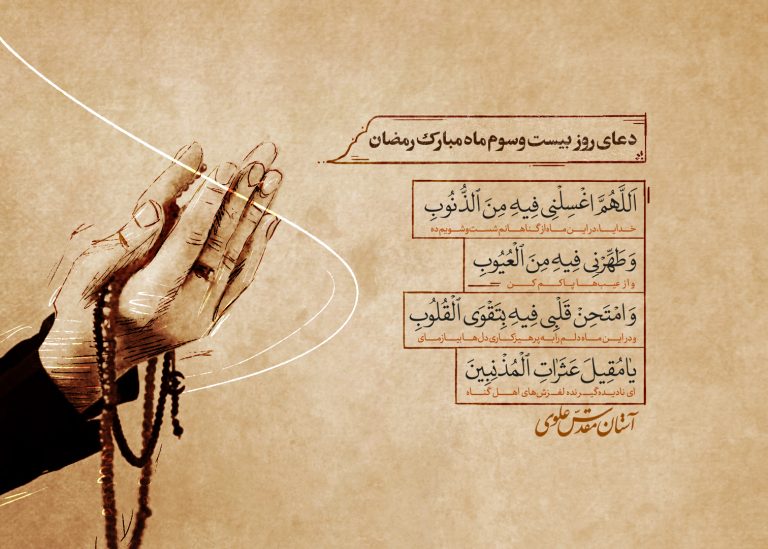 دعای روز بیست و سوم ماه مبارک رمضان
اَللَّهُمَّ اغْسِلْنِي فِيهِ مِنَ ٱلذُّنُوبِ
خدایا، در این ماه از گناهانم شست‌وشویم ده
وَ طَهِّرْنِي فِيهِ مِنَ ٱلْعُيُوبِ
و از عیب‌ها پاکم کن
وَ امْتَحِنْ قَلْبِي فِيهِ بِتَقْوَى ٱلْقُلُوبِ
و در این ماه دلم را به پرهیزکاری دل‌ها بیازمای
يٰا مُقِيلَ عَثَرَاتِ ٱلْمُذْنِبِينَ
ای نادیده گیرنده لغزش‌های اهل گناه
آستان مقدّس علوی